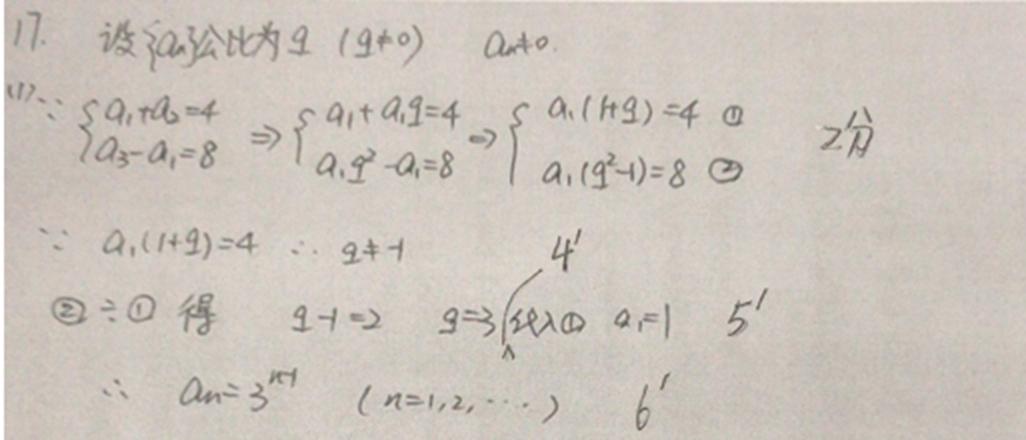 17. 设{aₙ}公比为q (q≠0) aₙ≠0.
(1)∵ {a₁+a₂=4 ⇒ {a₁+a₁q=4 ⇒ {a₁(1+q)=4 ① 2分
a₃-a₁=8 a₁q²-a₁=8 a₁(q²-1)=8 ②
∵ a₁(1+q)=4 ∴ q≠-1 4'
②÷① 得 q-1=2 q=3 代入① a₁=1 5'
∴ aₙ=3ⁿ⁻¹ (n=1,2,⋯) 6'